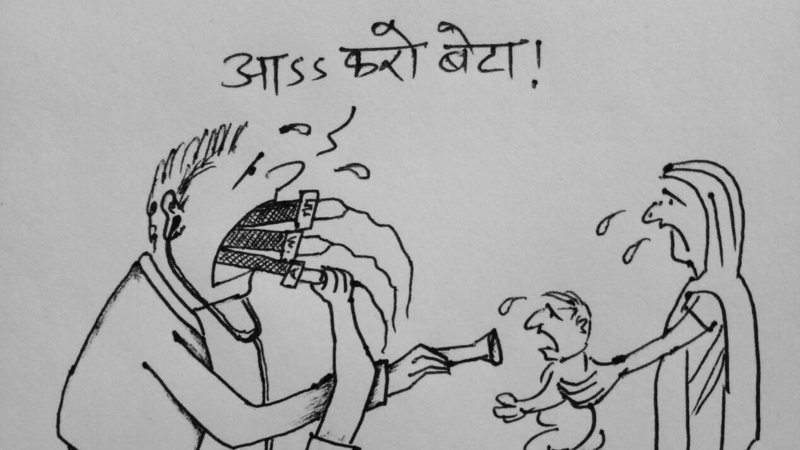 आऽऽ करो बेटा!